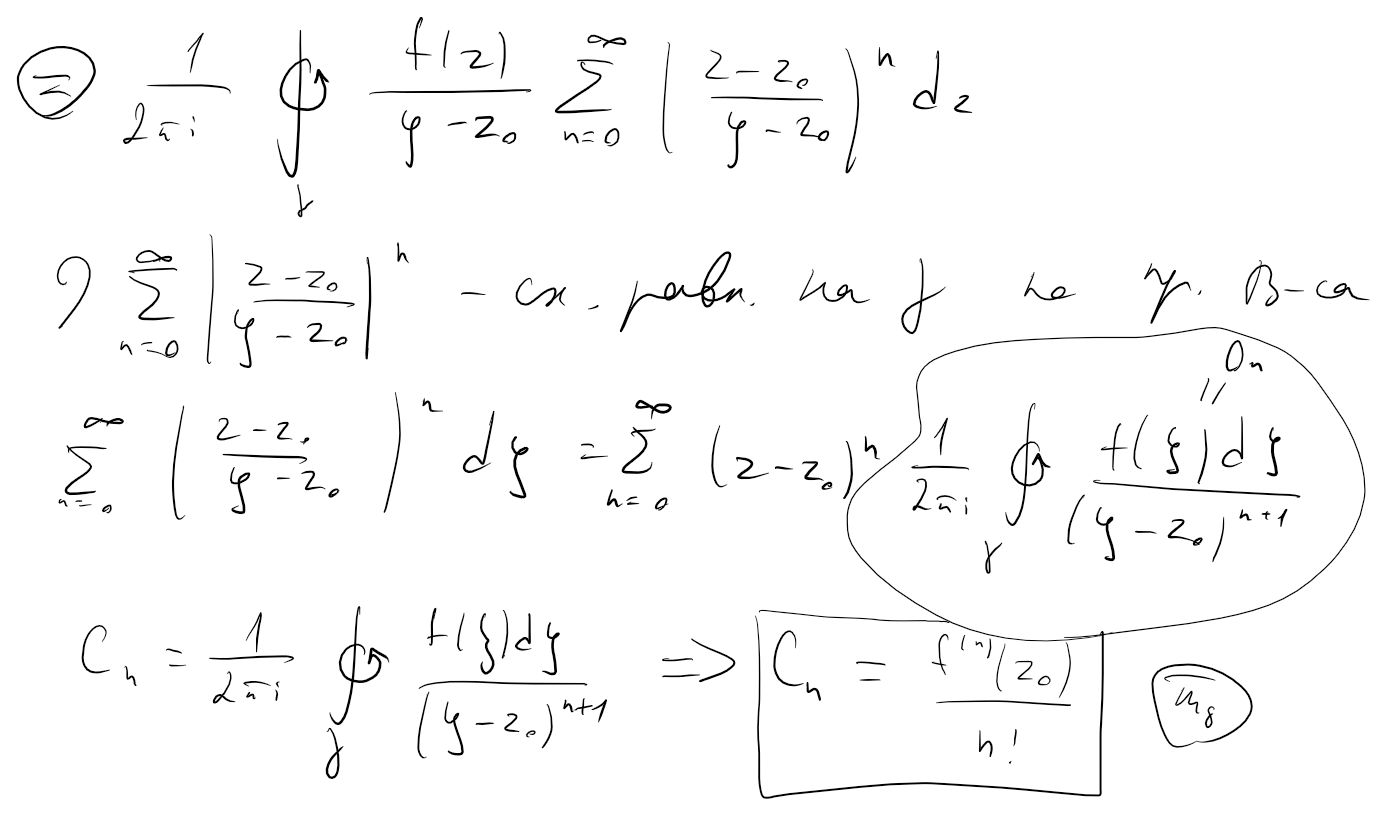 = 1/(2πi) ∮_γ f(z)/(ζ - z₀) ∑_{n=0}^{∞} ((z - z₀)/(ζ - z₀))ⁿ dz
∑_{n=0}^{∞} |(z - z₀)/(ζ - z₀)|ⁿ - сх. равн. на γ по пр. В-са
∑_{n=0}^{∞} ((z - z₀)/(ζ - z₀))ⁿ dζ = ∑_{n=0}^{∞} (z - z₀)ⁿ 1/(2πi) ∮_γ f(ζ)dζ/(ζ - z₀)ⁿ⁺¹
Cₙ = 1/(2πi) ∮_γ f(ζ)dζ/(ζ - z₀)ⁿ⁺¹ ⇒ Cₙ = f⁽ⁿ⁾(z₀)/n!